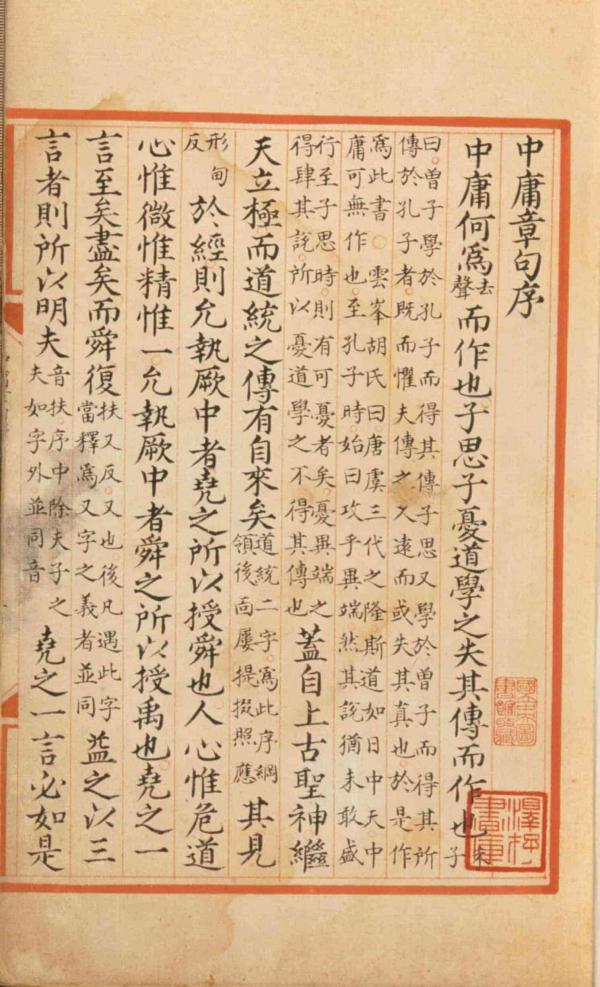 中庸章句序
中庸何爲去聲而作也子思子憂道學之失其傳而作也朱子
曰曾子學於孔子而得其傳子思又學於曾子而得其所
傳於孔子者既而懼夫傳之又遠而或失其真也於是作
爲此書○雲峯胡氏曰唐虞三代之隆斯道如日中天中
庸可無作也至孔子時始曰攻乎異端然其說猶未敢盛
行至子思時則有可憂者矣憂異端之
得肆其說所以憂道學之不得其傳也蓋自上古聖神繼
天立極而道統之傳有自來矣道統二字爲此序綱領後面屢提掇照應其見
形甸反於經則允執厥中者堯之所以授舜也人心惟危道
心惟微惟精惟一允執厥中者舜之所以授禹也堯之一
言至矣盡矣而舜復扶又反又也後凡遇此字當釋爲又字之義者並同益之以三
言者則所以明夫音扶序中除夫子之夫如字外並同音堯之一言必如是
澤存書庫